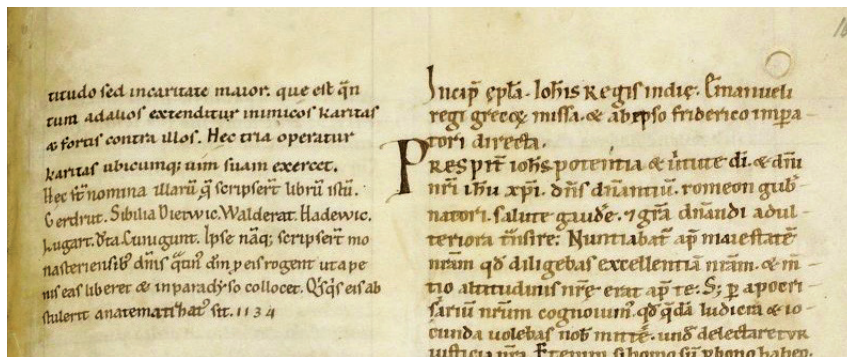 titudo sed in caritate maior. que est q̄n
tum ad alios extenditur inimicos karitas
& fortis contra illos. Hec tria operatur
karitas ubicumq; uim suam exercet.
Hec st̄ nomina illarū q̄ scripser̄t librū istū.
Gerdrut. Sibilia Dietwic. Walderat. Hadewic.
Lugart. Cunigunt. Ipse nāq; scripser̄t mo
nasteriensib; dn̄is rogent ut a pe
nis eas liberet & in paradyso collocet. Q̄sq̄s eis ab
stulerit anatematizat᷒ sit. 1134
Incip̄ ep̄la. Ioh̄is Regis indię. Emanueli
regi grecę missa. & ab epso friderico impa
tori directa.
Presbit̄ ioh̄s potentia & uirtute di. & dn̄i
nr̄i ih̄u xp̄i. dn̄s dn̄antiū. romeon gub̄
natori. salute gaudē. ⁊ gr̄a ditandi ad ul
teriora tn̄sire. Nuntiabat᷒ ap̄ maiestatē
nr̄am qd̄ diligebas excellentiā nr̄am. & m̄
tio altitudinis nr̄ę erat ap̄ te. S; p̄ apocri
sariū nr̄um cognouim᷒. qd̄ q̄dā ludicra & io
cunda uolebas nob̄ mittē. und̄ delectaretur
iusticia nr̄a. Etenim si homo sū p̄ bono habeo.